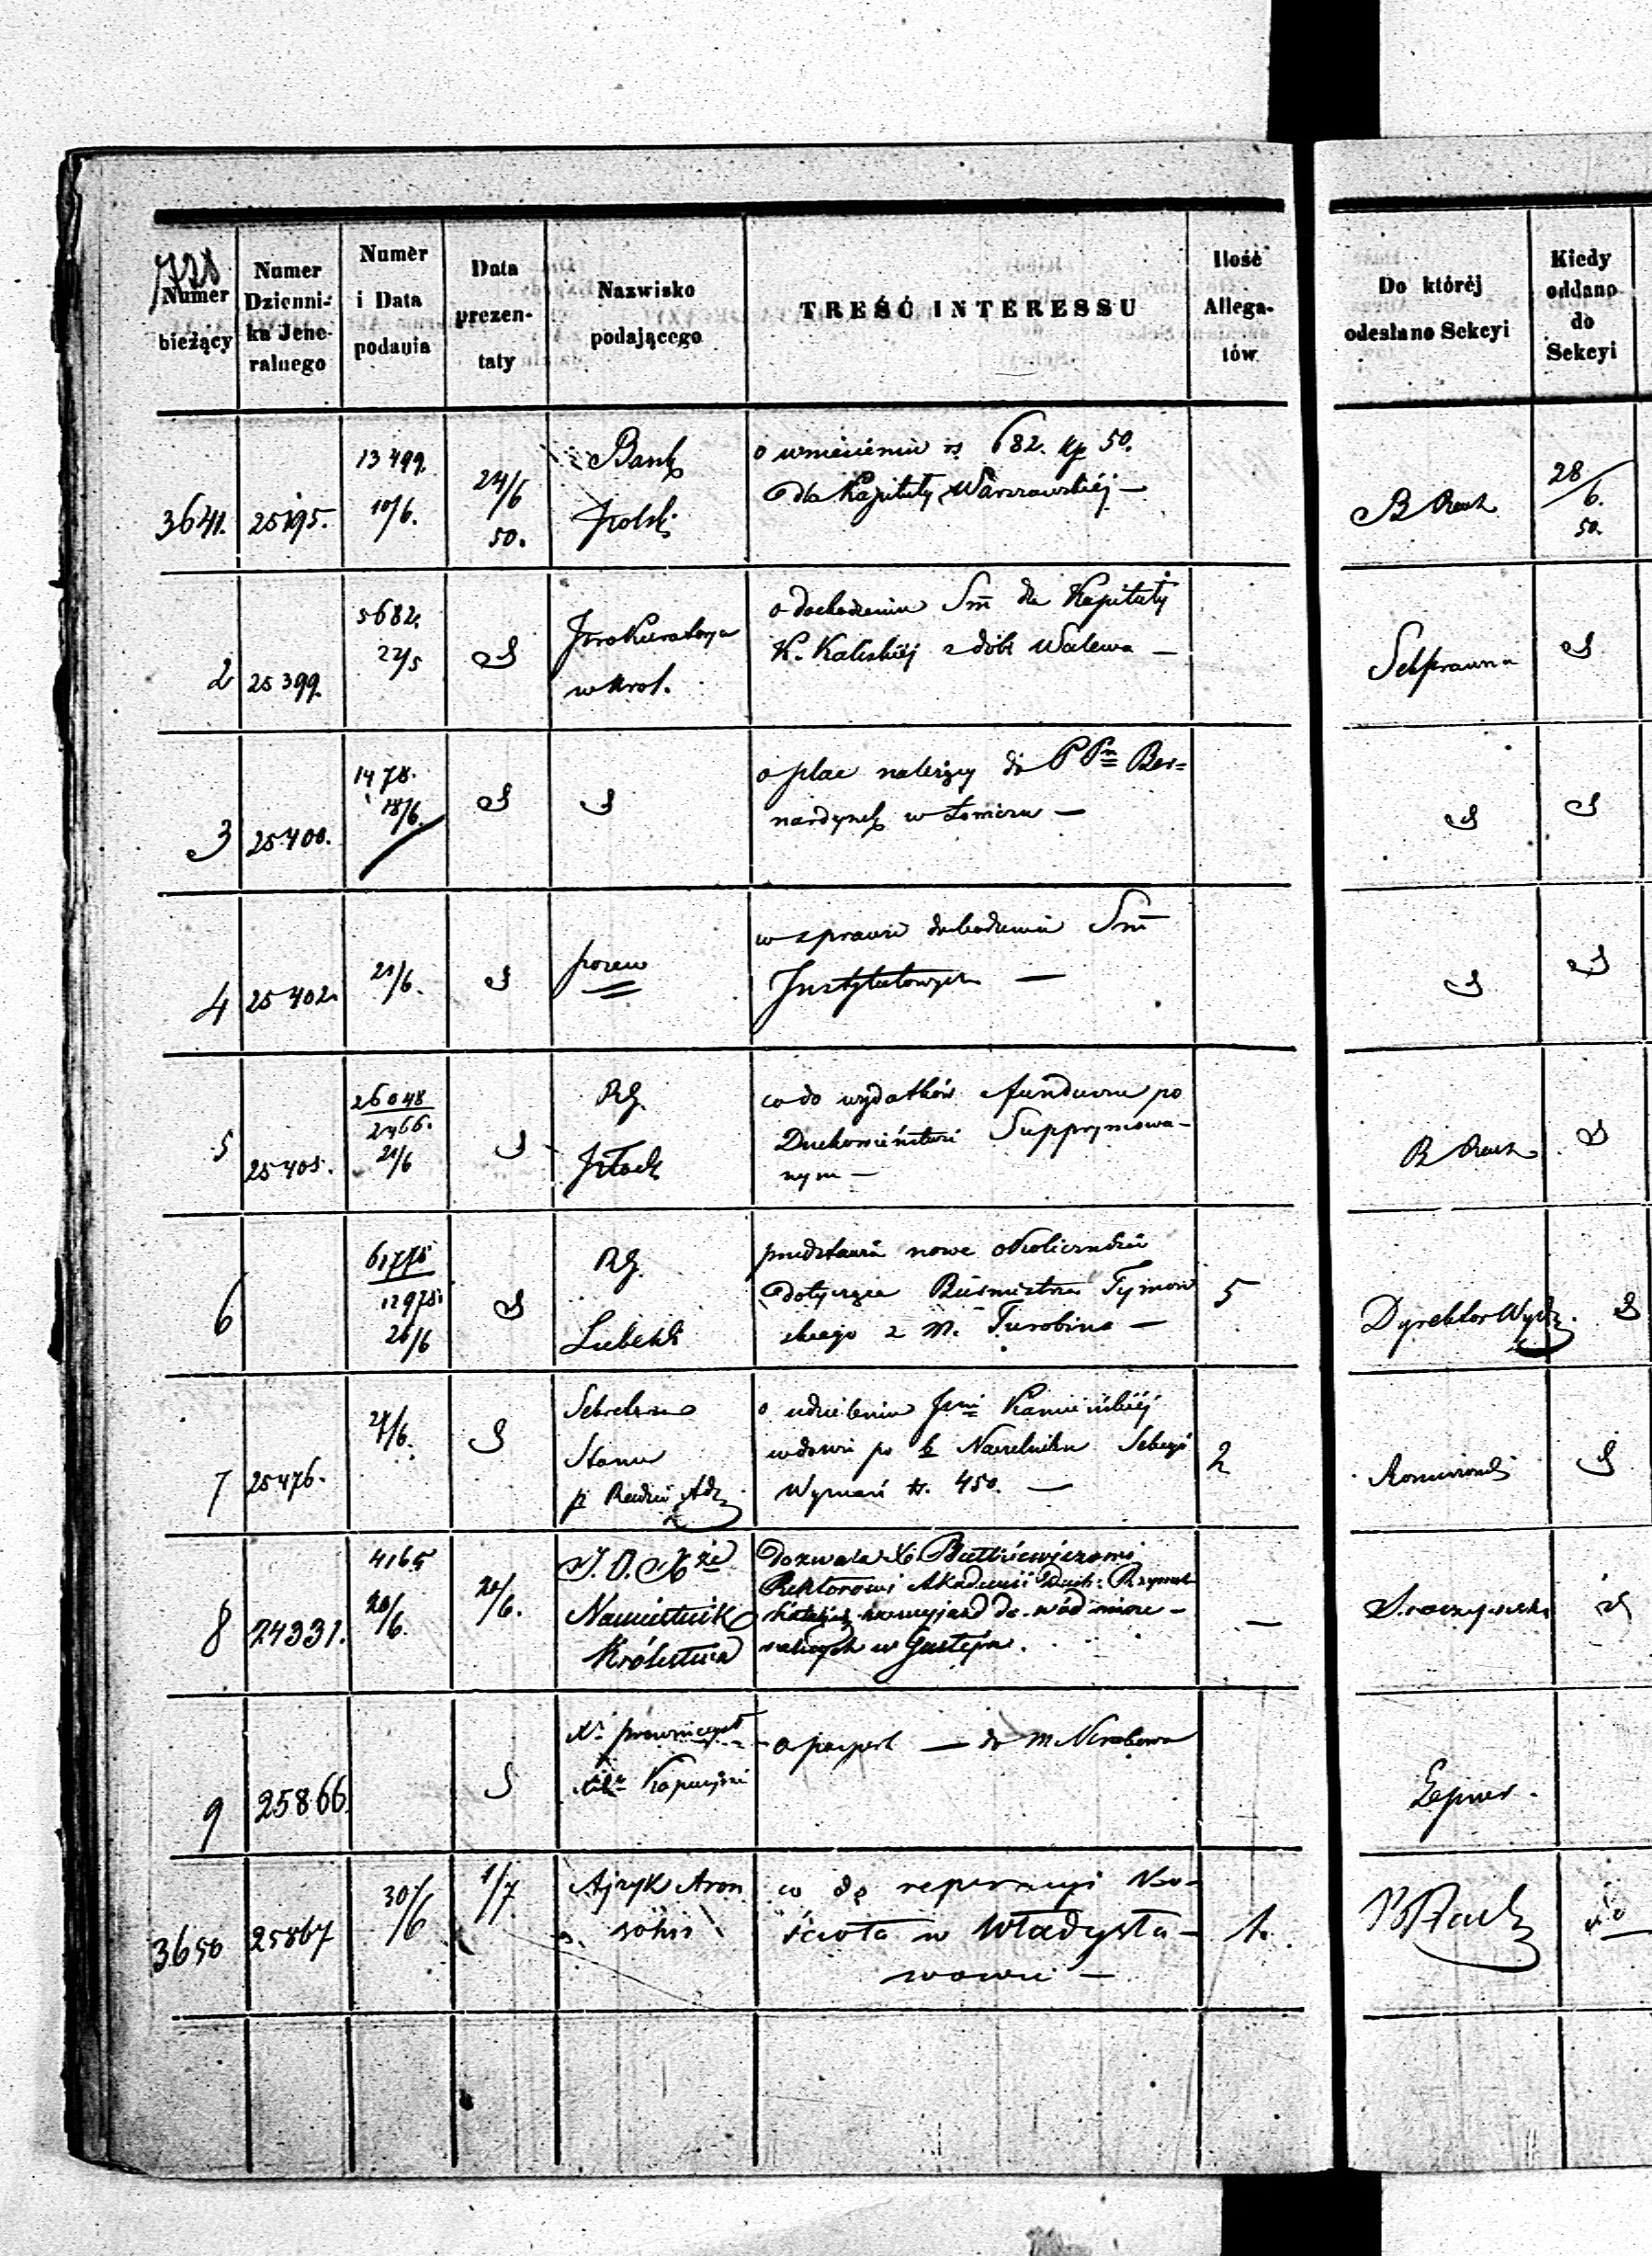 728
Numer bieżący
Numer Dzienni-ka Jene-ralnego
Numer i Data podania
Data prezen-taty
Nazwisko podającego
TREŚĆ INTERESSU
Ilość Allega-tów
Do któréj odesłano Sekcyi
Kiedy oddano do Sekcyi
3641. 25195. 13499. 10/6. 24/6 50.
Bank
Polski
o wniesienie rs. 682. kp 50.
dla Kapituły Warszawskiéj —
B Rach
28/6. 50.
2 25399. 5682. 22/5
Prokuratorya
w Krol.
o dochodzeniu Sm dla Kapituły
K. Kaliskiéj z dóbr Walewa —
Sek prawna
3 25400. 1478. 18/6.
o plac należący do PPn Ber=
nardynek w Łowiczu —
4 25402. 21/6.
pozew
w sprawie dochodzenia Sm
Instytutowych —
5 25405. 26048 2466. 21/6
RG.
Płock
co do wydatków funduszu po
Duchowieństwie Supprymowa-
nym —
B Rach
6 61778 12978. 26/6
RG.
Lubelski
przedstawia nowe okoliczności
dotyczące Burmistrza Tymow
skiego z M. Turobina —
5
Dyrektor Wydz.
7 25476. 27/6.
Sekretarz
Stanu
o udzieleniu Pni Kamińskiéj
wdowie po Naczelniku Sekcyi
450. —
2
8 24331. 4165 20/6. 20/6.
J. O. Xże
Namiestnik
Królestwa
Dozwala X. Butkiewiczowi
Rektorowi Akademii Duch: Rzymsk
Katolick na wyjazd do wód mine-
ralnych w Gastejn.
—
9 25866.
X. prowincyał
Kapucyni
o paszport — do M. Krakowa
Lepner.
3650 25867 30/6 1/7
Ajzyk Aron
sohn
co do reperacyi Ko-
ścioła w Władysła-
wowie —
1.
B Rach